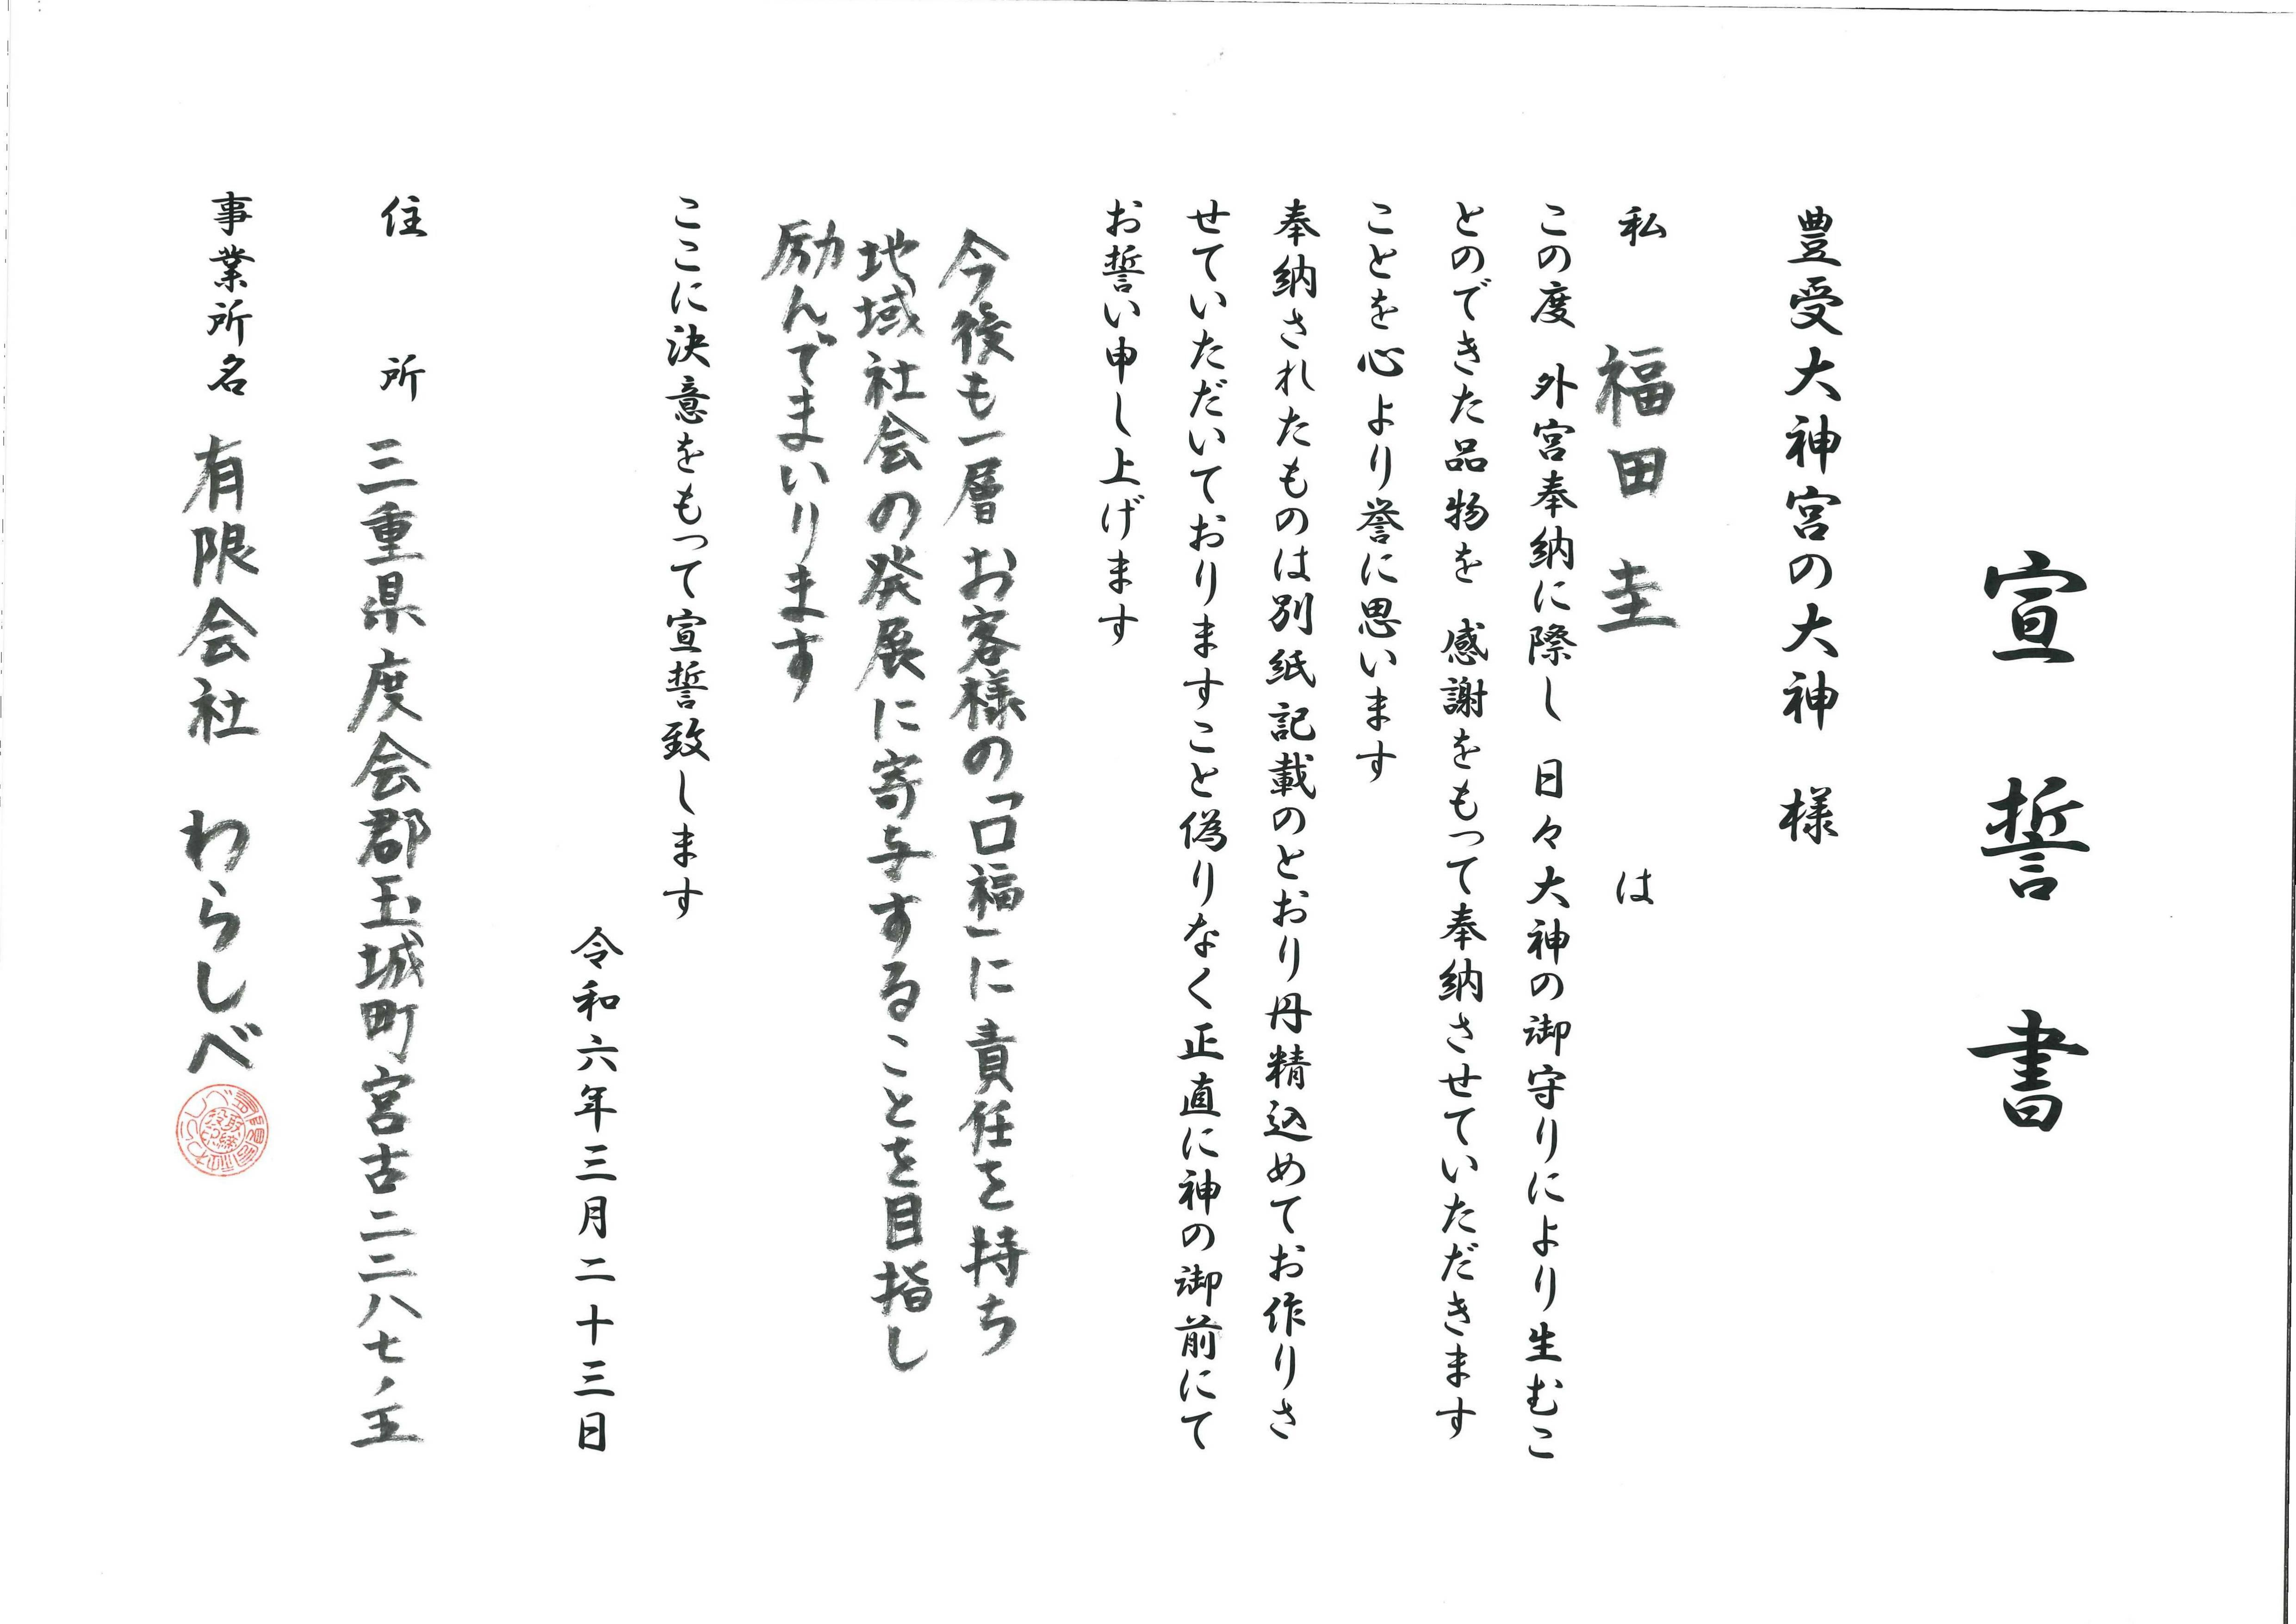 宣誓書
豊受大神宮の大神 様
私 福田 圭 は
この度 外宮奉納に際し 日々大神の御守りにより生むこ
とのできた品物を 感謝をもって奉納させていただきます
ことを心より誉に思います
奉納されたものは別紙記載のとおり丹精込めてお作りさ
せていただいておりますこと偽りなく正直に神の御前にて
お誓い申し上げます
今後も一層 お客様の「口福」に責任を持ち
地域社会の発展に寄与することを目指し
励んでまいります
ここに決意をもって宣誓致します
令和六年三月二十三日
住 所 三重県度会郡玉城町宮古二二八七ノ五
事業所名 有限会社 わらしべ
有限会社わらしべ
取締役印